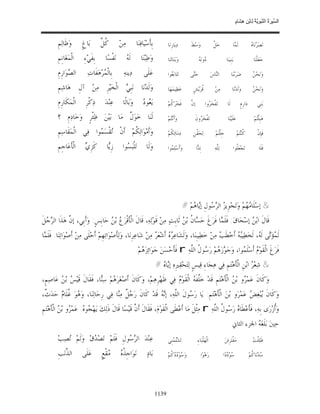 السِّيرَةُ النَّبَوِيَّةُ لِابْنِ هِشَامٍ
نَصَرْنَاهُ لَمَّا حَلَّ وَسْطَ دِيَارِنَا بِأَسْيَافِنَا مِنْ كُلِّ بَاغٍ وَظَالِمِ
جَعَلْنَا بَنِينَا دُونَهُ وَبَنَاتِنَا وَطِبْنَا لَهُ نَفْسًا بِفَيْءِ الْمَغَانِمِ
وَنَحْنُ ضَرَبْنَا النَّاسَ حَتَّى تَتَابَعُوا عَلَى دِينِهِ بِالْمُرْهَفَاتِ الصَّوَارِمِ
وَنَحْنُ وَلَدْنَا مِنْ قُرَيْشٍ عَظِيمَهَا وَلَدْنَا نَبِيَّ الْخَيْرِ مِنْ آلِ هَاشِمِ
بَنِي دَارِمٍ لَا تَفْخَرُوا إنَّ فَخْرَكُمْ يَعُودُ وَبَالًا عِنْدَ ذِكْرِ الْمَكَارِمِ
هَبِلْتُمْ عَلَيْنَا تَفْخَرُونَ وَأَنْتُمْ لَنَا خَوَلٌ مَا بَيْنَ ظِئْرٍ وَخَادِمِ ؟
فَإِنْ كُنْتُمْ جِئْتُمْ لِحَقْنِ دِمَائِكُمْ وَأَمْوَالِكُمْ أَنْ تُقْسَمُوا فِي الْمَقَاسِمِ
فَلَا تَجْعَلُوا لِلَّهِ نِدًّا وَأَسْلِمُوا وَلَا تَلْبَسُوا زِيًّا كَزِيِّ الْأَعَاجِمِ
إسْلَامُهُمْ وَتَجْوِيزُ الرَّسُولِ إيَّاهُمْ
قَالَ ابْنُ إسْحَاقَ: فَلَمَّا فَرَغَ حَسَّانُ بْنُ ثَابِتٍ مِنْ قَوْلِهِ، قَالَ الْأَقْرَعُ بْنُ حَابِسٍ: وَأَبِي، إنَّ هَذَا الرَّجُلَ
لَمُؤَتًّى لَهُ، لَخَطِيبُهُ أَخْطَبُ مِنْ خَطِيبِنَا، وَلَشَاعِرُهُ أَشْعَرُ مِنْ شَاعِرِنَا، وَلَأَصْوَاتُهُمْ أَحْلَى مِنْ أَصْوَاتِنَا. فَلَمَّا
فَرَغَ الْقَوْمُ أَسْلَمُوا، وَجَوَّزَهُمْ رَسُولُ اللَّهِ فَأَحْسَنَ جَوَائِزَهُمْ
شِعْرُ ابْنِ الْأَهْتَمِ فِي هِجَاءِ قَيْسٍ لِتَحْقِيرِهِ إيَّاهُ
وَكَانَ عَمْرُو بْنُ الْأَهْتَمِ قَدْ خَلَّفَهُ الْقَوْمُ فِي ظَهْرِهِمْ، وَكَانَ أَصْغَرَهُمْ سِنًّا، فَقَالَ قَيْسُ بْنُ عَاصِمٍ،
وَكَانَ يُبْغِضُ عَمْرَو بْنَ الْأَهْتَمِ: يَا رَسُولَ اللَّهِ، إنَّهُ قَدْ كَانَ رَجُلٌ مِنَّا فِي رِحَالِنَا، وَهُوَ غُلَامٌ حَدَثٌ،
وَأَزْرَى بِهِ، فَأَعْطَاهُ رَسُولُ اللَّهِ مِثْلَ مَا أَعْطَى الْقَوْمَ، فَقَالَ أَنَّ قَيْسًا قَالَ ذَلِكَ يَهْجُوهُ: عَمْرُو بْنُ الْأَهْتَمِ
حِينَ بَلَغَهُ الجزء الثاني
ظَلِلْتَ مُفْتَرِشَ الْهَلْبَاءِ تَشْتُمُنِي عِنْدَ الرَّسُولِ فَلَمْ تَصْدُقْ وَلَمْ تُصِبْ
سُدْنَاكُمْ سُوْدُدًا رَهْوًا وَسُوْدُدُكُمْ بَادٍ نَوَاجِذُهُ مُقْعٍ عَلَى الذَّنَبِ
1139